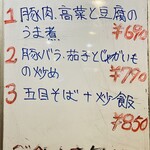 1 豚肉、高菜と豆腐の
うま煮 ¥690
2 豚バラ、茄子とじゃがいも
の炒め ¥770
3 五目そば + 炒飯
¥850